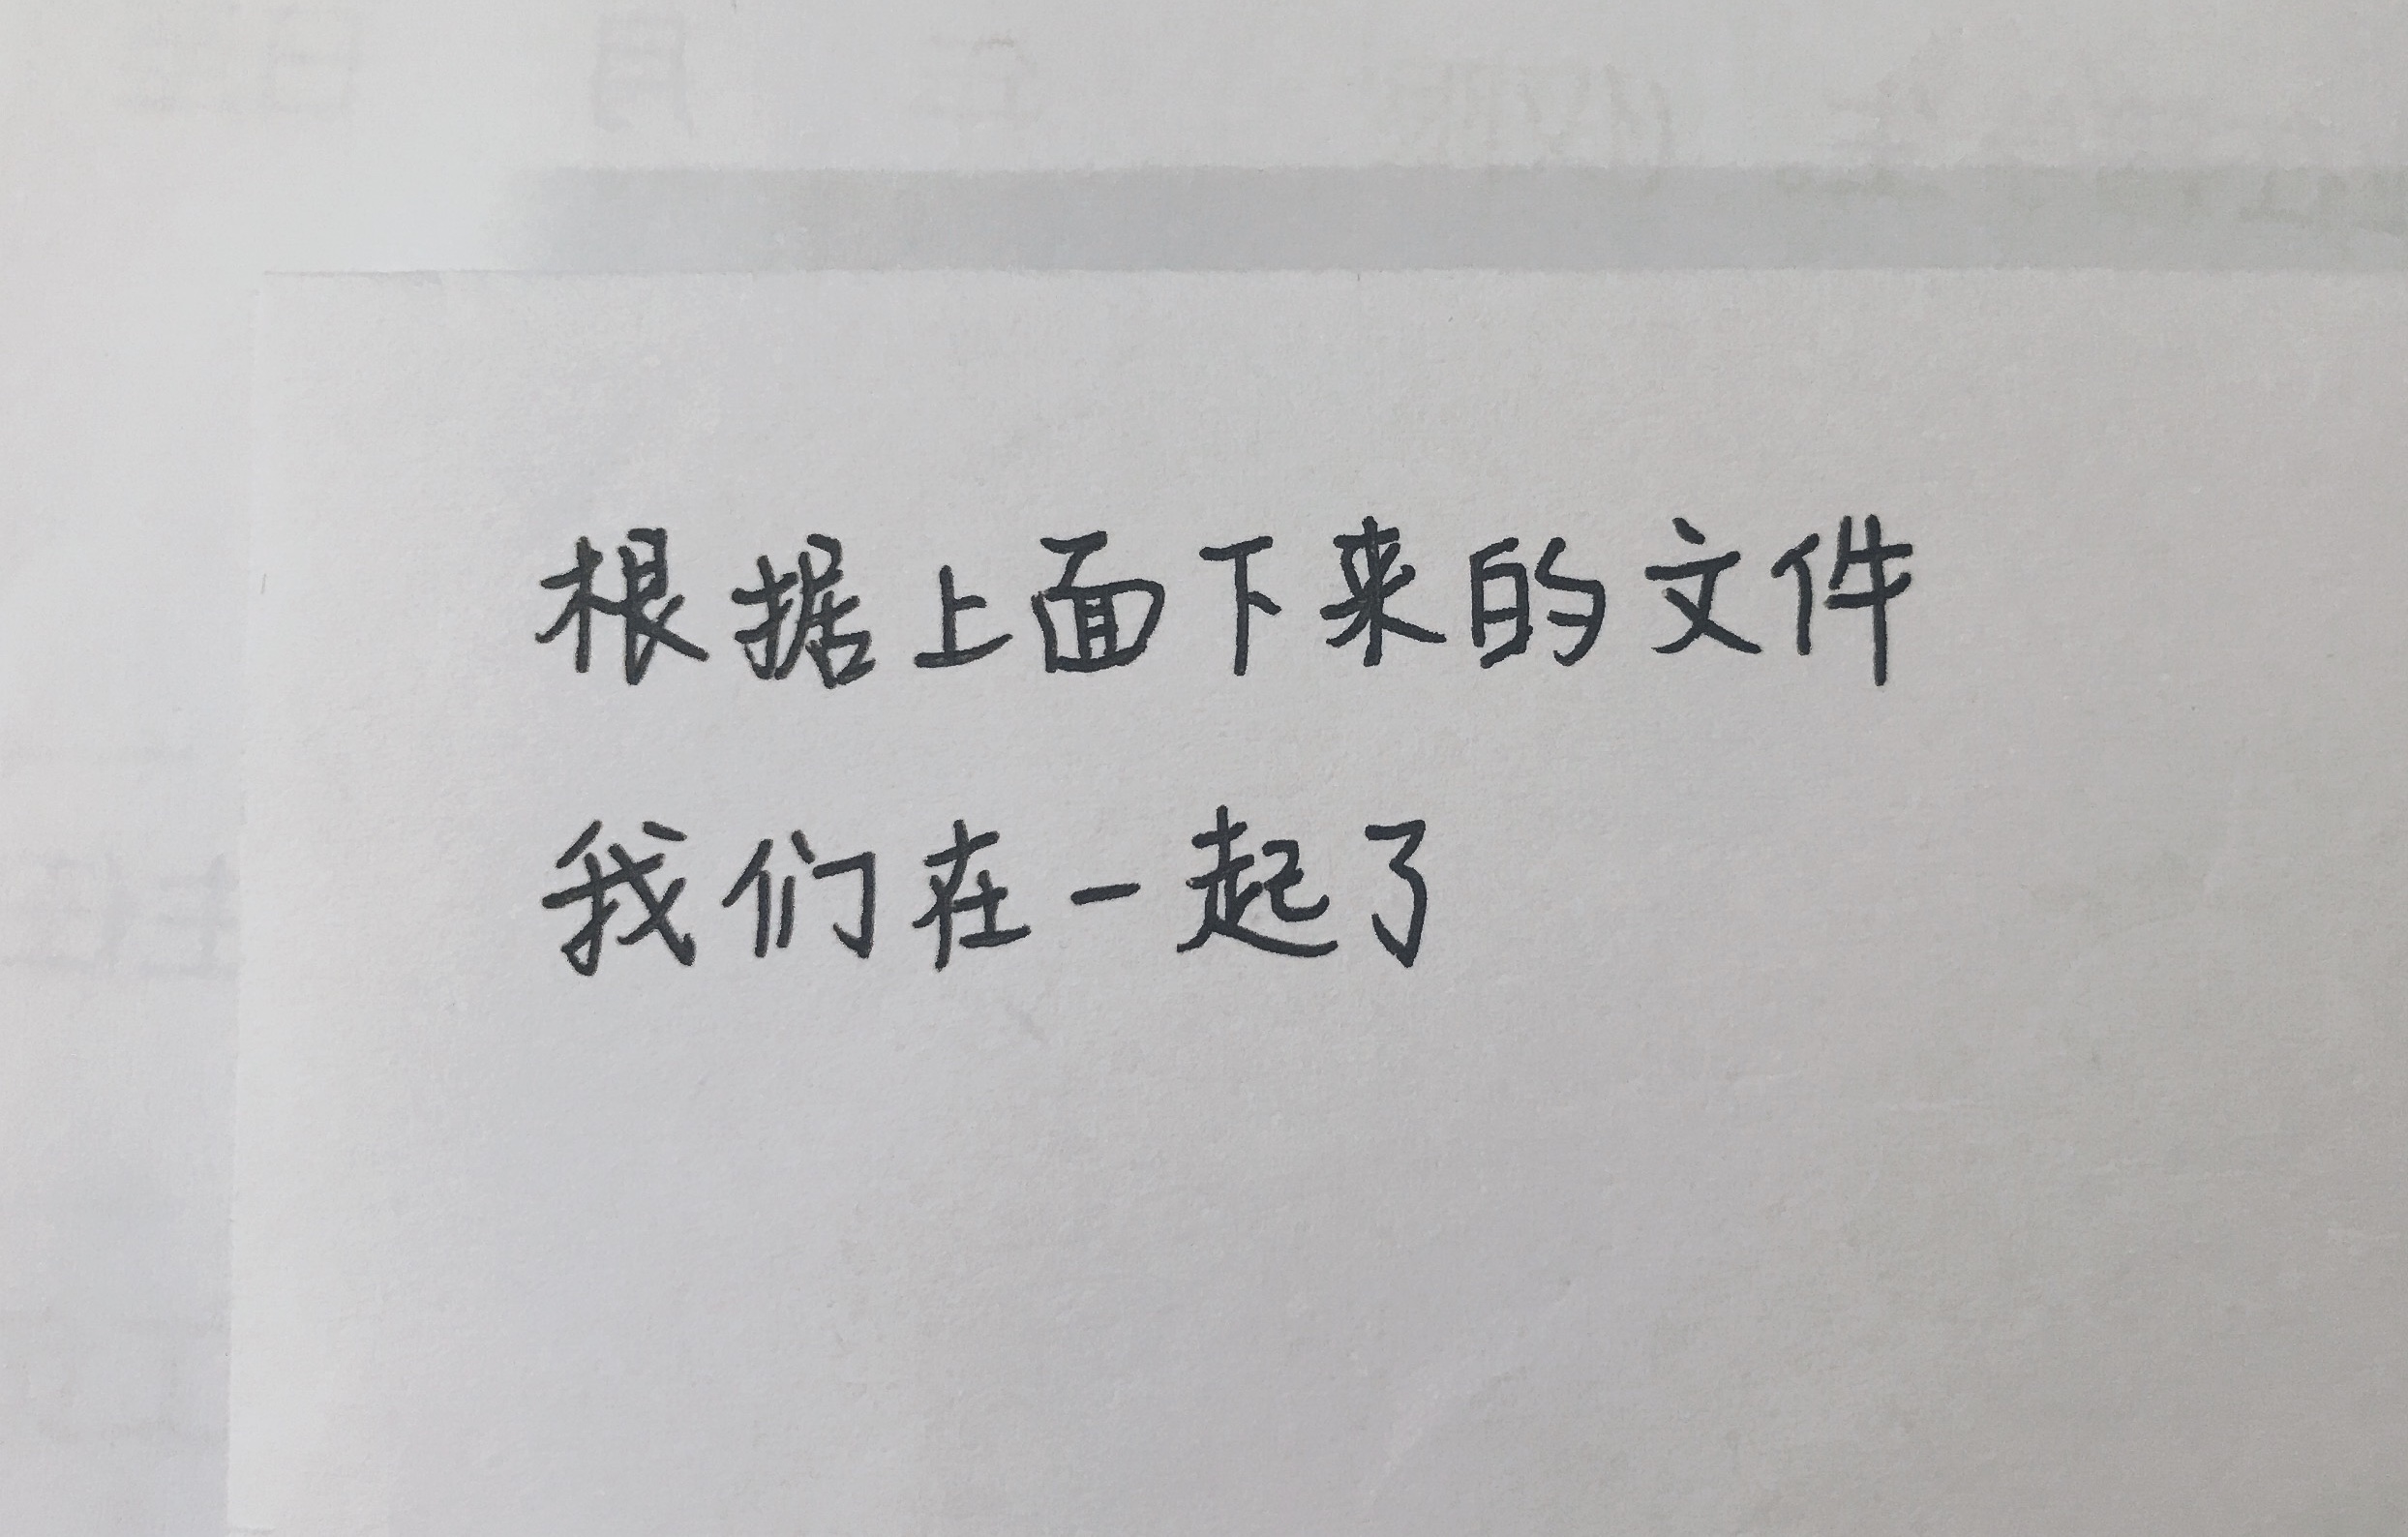 根据上面下来的文件
我们在一起了